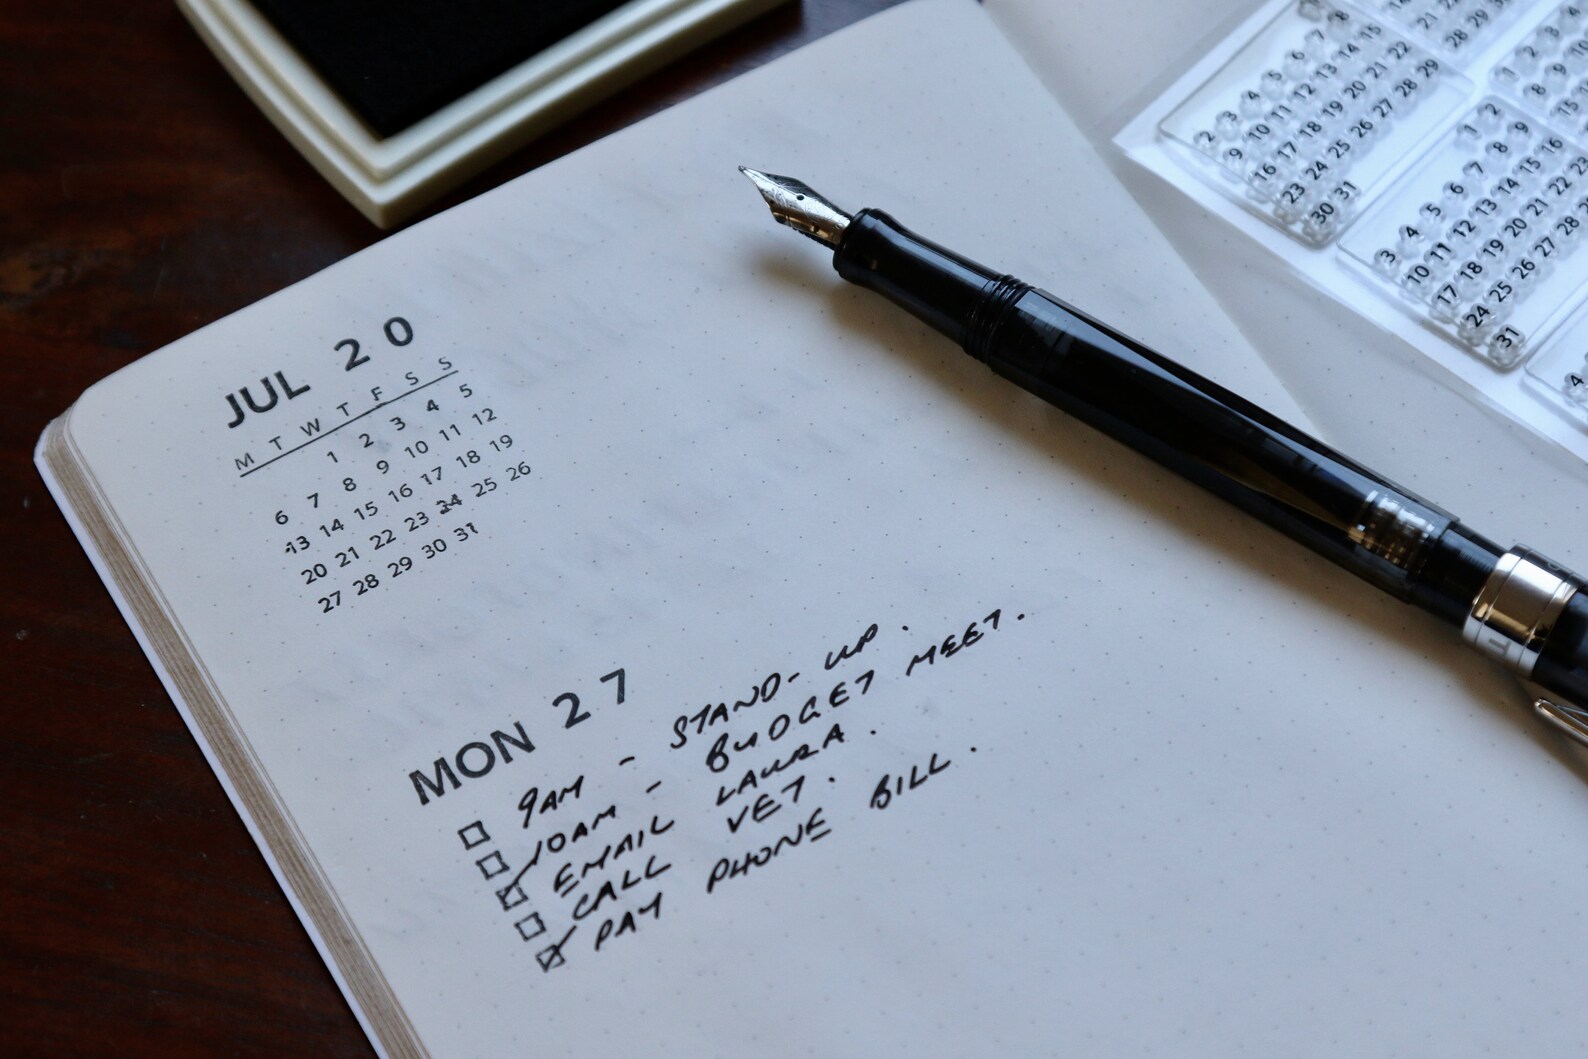 JUL 20
M T W T F S S
1 2 3 4 5
6 7 8 9 10 11 12
13 14 15 16 17 18 19
20 21 22 23 24 25 26
27 28 29 30 31
MON 27
9AM - STAND-UP.
10AM - BUDGET MEET.
EMAIL LAURA.
CALL VET.
PAY PHONE BILL.
2 3 4 5 6 7 8
9 10 11 12 13 14 15
16 17 18 19 20 21 22
23 24 25 26 27 28 29
30 31
1 2
3 4 5 6 7 8 9
10 11 12 13 14 15 16
17 18 19 20 21 22 23
24 25 26 27 28
31